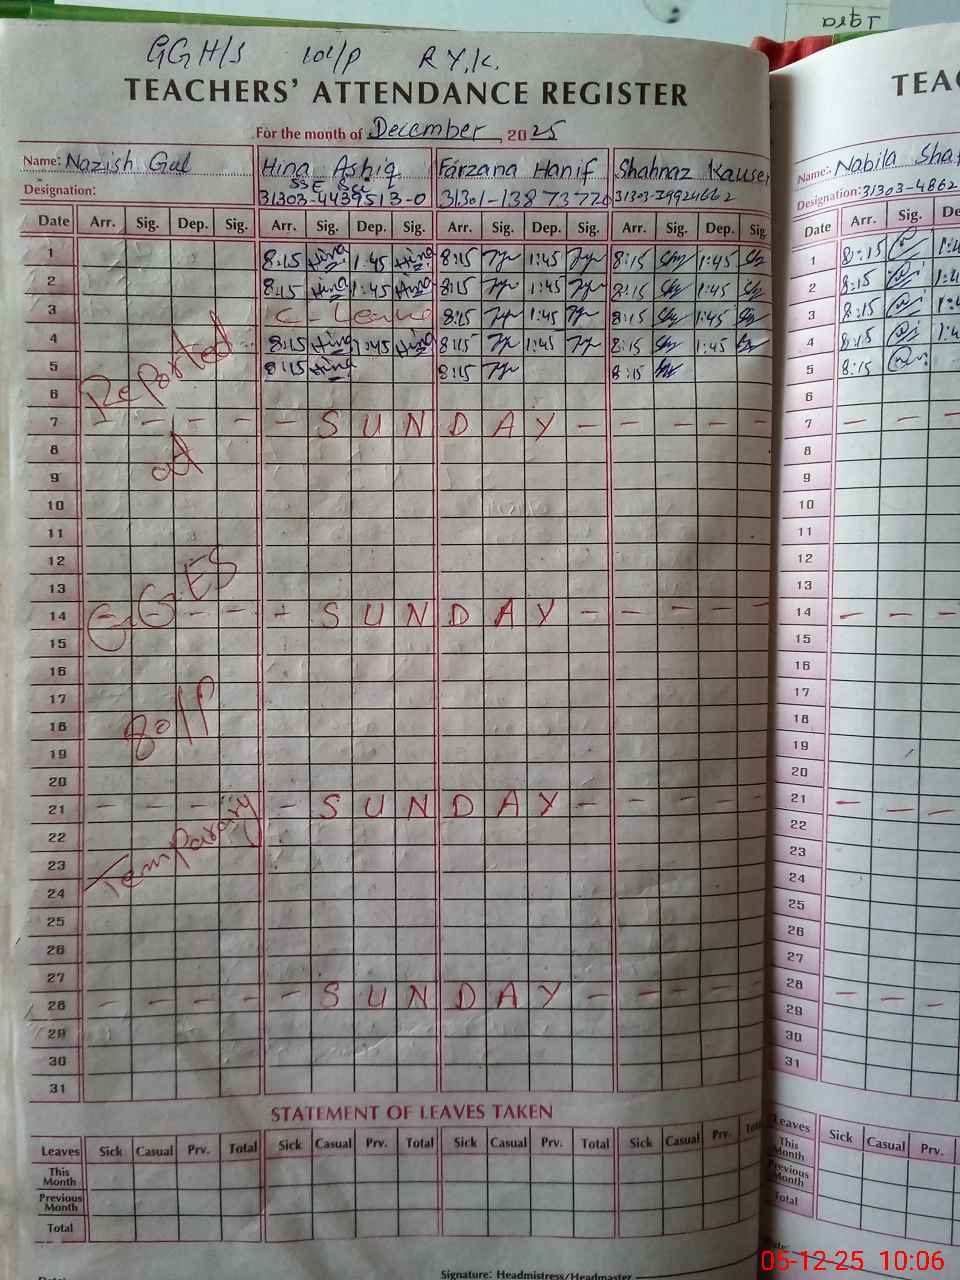 Iqra
GGH/S 101/P R.Y.K.
TEACHERS' ATTENDANCE REGISTER
For the month of December, 2025
Name: Nazish Gul Hina Ashiq Farzana Hanif Shahnaz Kauser
Designation: SSE
31303-4439513-0 31301-138737720 31303-3992466 2
Date Arr. Sig. Dep. Sig. Arr. Sig. Dep. Sig. Arr. Sig. Dep. Sig. Arr. Sig. Dep. Sig.
1 8:15 Hina 1:45 Hina 8:15 1:45 8:15 1:45
2 8:15 Hina 1:45 Hina 8:15 1:45 8:15 1:45
3 C-Leave 8:15 1:45 8:15 1:45
4 8:15 Hina 1:45 Hina 8:15 1:45 8:15 1:45
5 8:15 Hina 8:15 8:15
6
7 - - - - - S U N D A Y - - - - -
8
9
10
11
12
13
14 - - - S U N D A Y - - - - -
15
16
17
18
19
20
21 - - - - - S U N D A Y - - - - -
22
23
24
25
26
27
28 - - - - - S U N D A Y - - - - -
29
30
31
Reported
at
G.G.ES
80/P
Temparary
STATEMENT OF LEAVES TAKEN
Leaves Sick Casual Prv. Total Sick Casual Prv. Total Sick Casual Prv. Total Sick Casual Prv. Total
This Month
Previous Month
Total
Signature: Headmistress/Headmaster
TEAC
Name: Nabila Shaf
Designation: 31303-4862
Date Arr. Sig. De
1 8:15 1:4
2 8:15 1:4
3 8:15 1:4
4 8:15 1:4
5 8:15
6
7 - - -
8
9
10
11
12
13
14 - - -
15
16
17
18
19
20
21 - - -
22
23
24
25
26
27
28 - - -
29
30
31
Leaves Sick Casual Prv.
This Month
Previous Month
Total
05-12-25 10:06